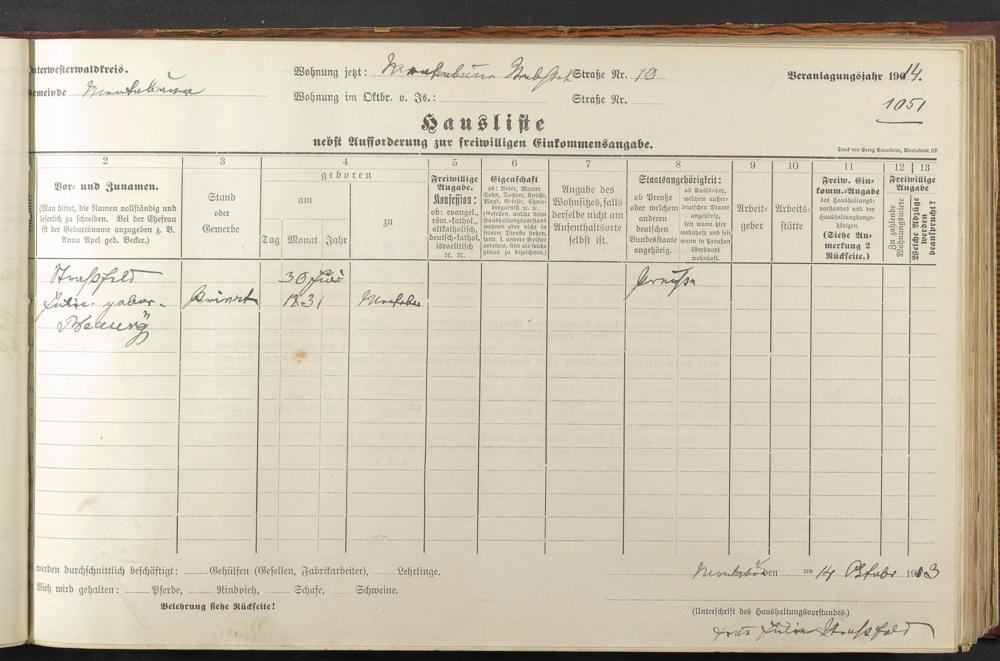 Unterwesterwaldkreis.
Gemeinde Montabaur
Wohnung jetzt: Montabaur Straße Nr. 10
Wohnung im Oktbr. v. Js.: Straße Nr.
Veranlagungsjahr 1914.
1051
Hausliste
nebst Aufforderung zur freiwilligen Einkommensangabe.
Druck von Georg Sauerborn, Montabaur. 07
2
3
4
5
6
7
8
9
10
11
12
13
Vor- und Zunamen.
(Man bittet, die Namen vollständig und
leserlich zu schreiben. Bei der Ehefrau
ist der Geburtsname anzugeben z. B.
Anna Apel geb. Becker.)
Stand
oder
Gewerbe
geboren
am
Tag Monat Jahr
zu
Freiwillige
Angabe.
Konfession:
ob: evangel.,
röm.-kathol.,
altkatholisch,
deutsch-kathol.
israelitisch
ꝛc. ꝛc.
Eigenschaft
ob: Vater, Mutter
Sohn, Tochter, Knecht,
Magd, Geselle,
ꝛc. ꝛc.
Angabe des
Wohnsitzes, falls
derselbe nicht am
Aufenthaltsorte
selbst ist.
Staatsangehörigkeit:
ob Preuße
oder welchem
anderen
deutschen
Bundesstaate
angehörig.
ob Ausländer,
welchem außer-
deutschen Staate
angehörig,
seit wann hier
wohnhaft und seit
wann in Preußen
überhaupt
wohnhaft.
Arbeit-
geber
Arbeits-
stätte
Freiw. Ein-
komm.-Angabe
des Haushaltungs-
vorstandes und der
Haushaltungsange-
hörigen.
(Siehe An-
merkung 2
Rückseite.)
Freiwillige
Angabe
Zu zahlende
Wohnungsmiete
Welche Abzüge
werden
beansprucht?
Straßfeld
30 Juli
Preuße
Julie gebor.
Privat
1831
Montabaur
werden durchschnittlich beschäftigt: Gehülfen (Gesellen, Fabrikarbeiter), Lehrlinge.
Vieh wird gehalten: Pferde, Rindvieh, Schafe, Schweine.
Belehrung siehe Rückseite!
Montabaur den 14 Oktober 1913
(Unterschrift des Haushaltungsvorstandes.)
Frau Julie Straßfeld